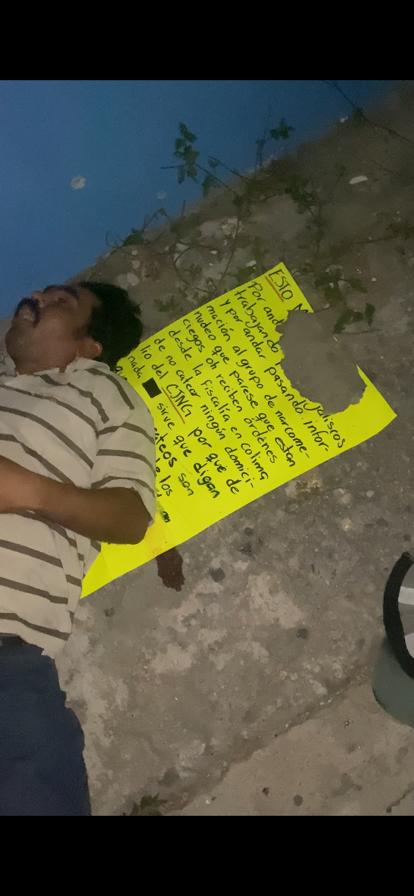 ESTO
Por an
trabajando peligros
y por andar pasando infor-
mación al grupo de narcome-
nudeo que parese que estan
ciegos oh reciben órdenes
desde la fiscalía en colima
de no catear ningún domici-
lio del CJNG por que de
nada sirve que digan
son
los